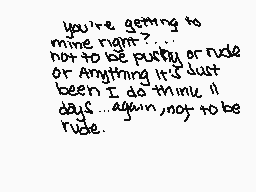 you're getting to
mine right?...
not to be pushy or rude
or Anything it's Just
been I do think 11
days...again, not to be
rude.